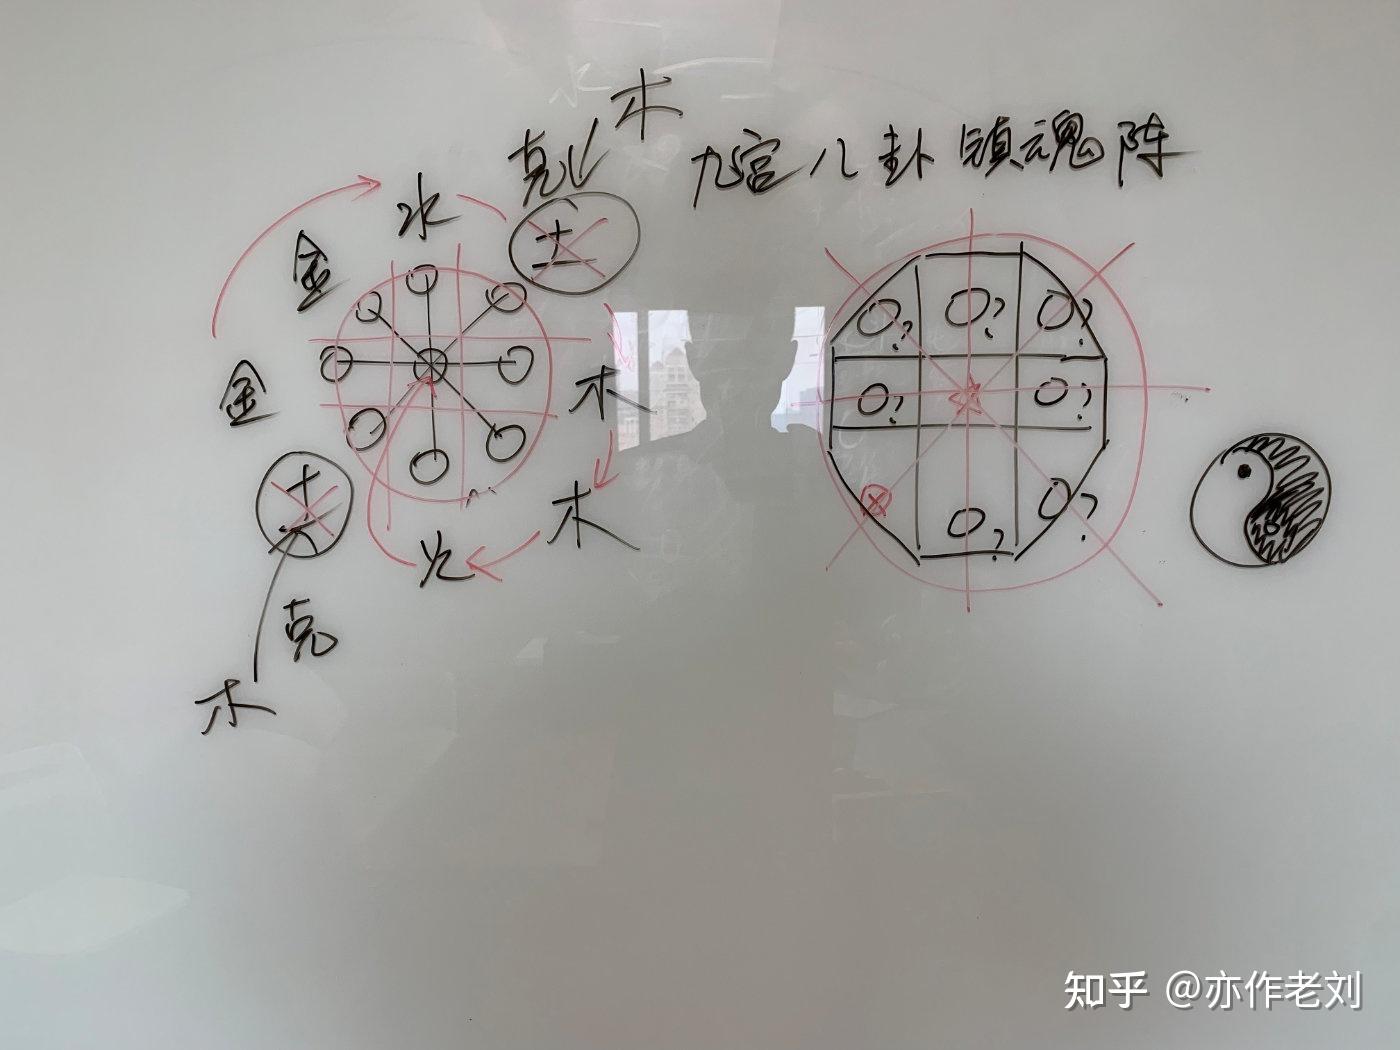 木
克
九宫八卦镇魂阵
水
土
金
金
木
土
木
火
克
木
?
?
?
?
?
?
?
知乎 @亦作老刘